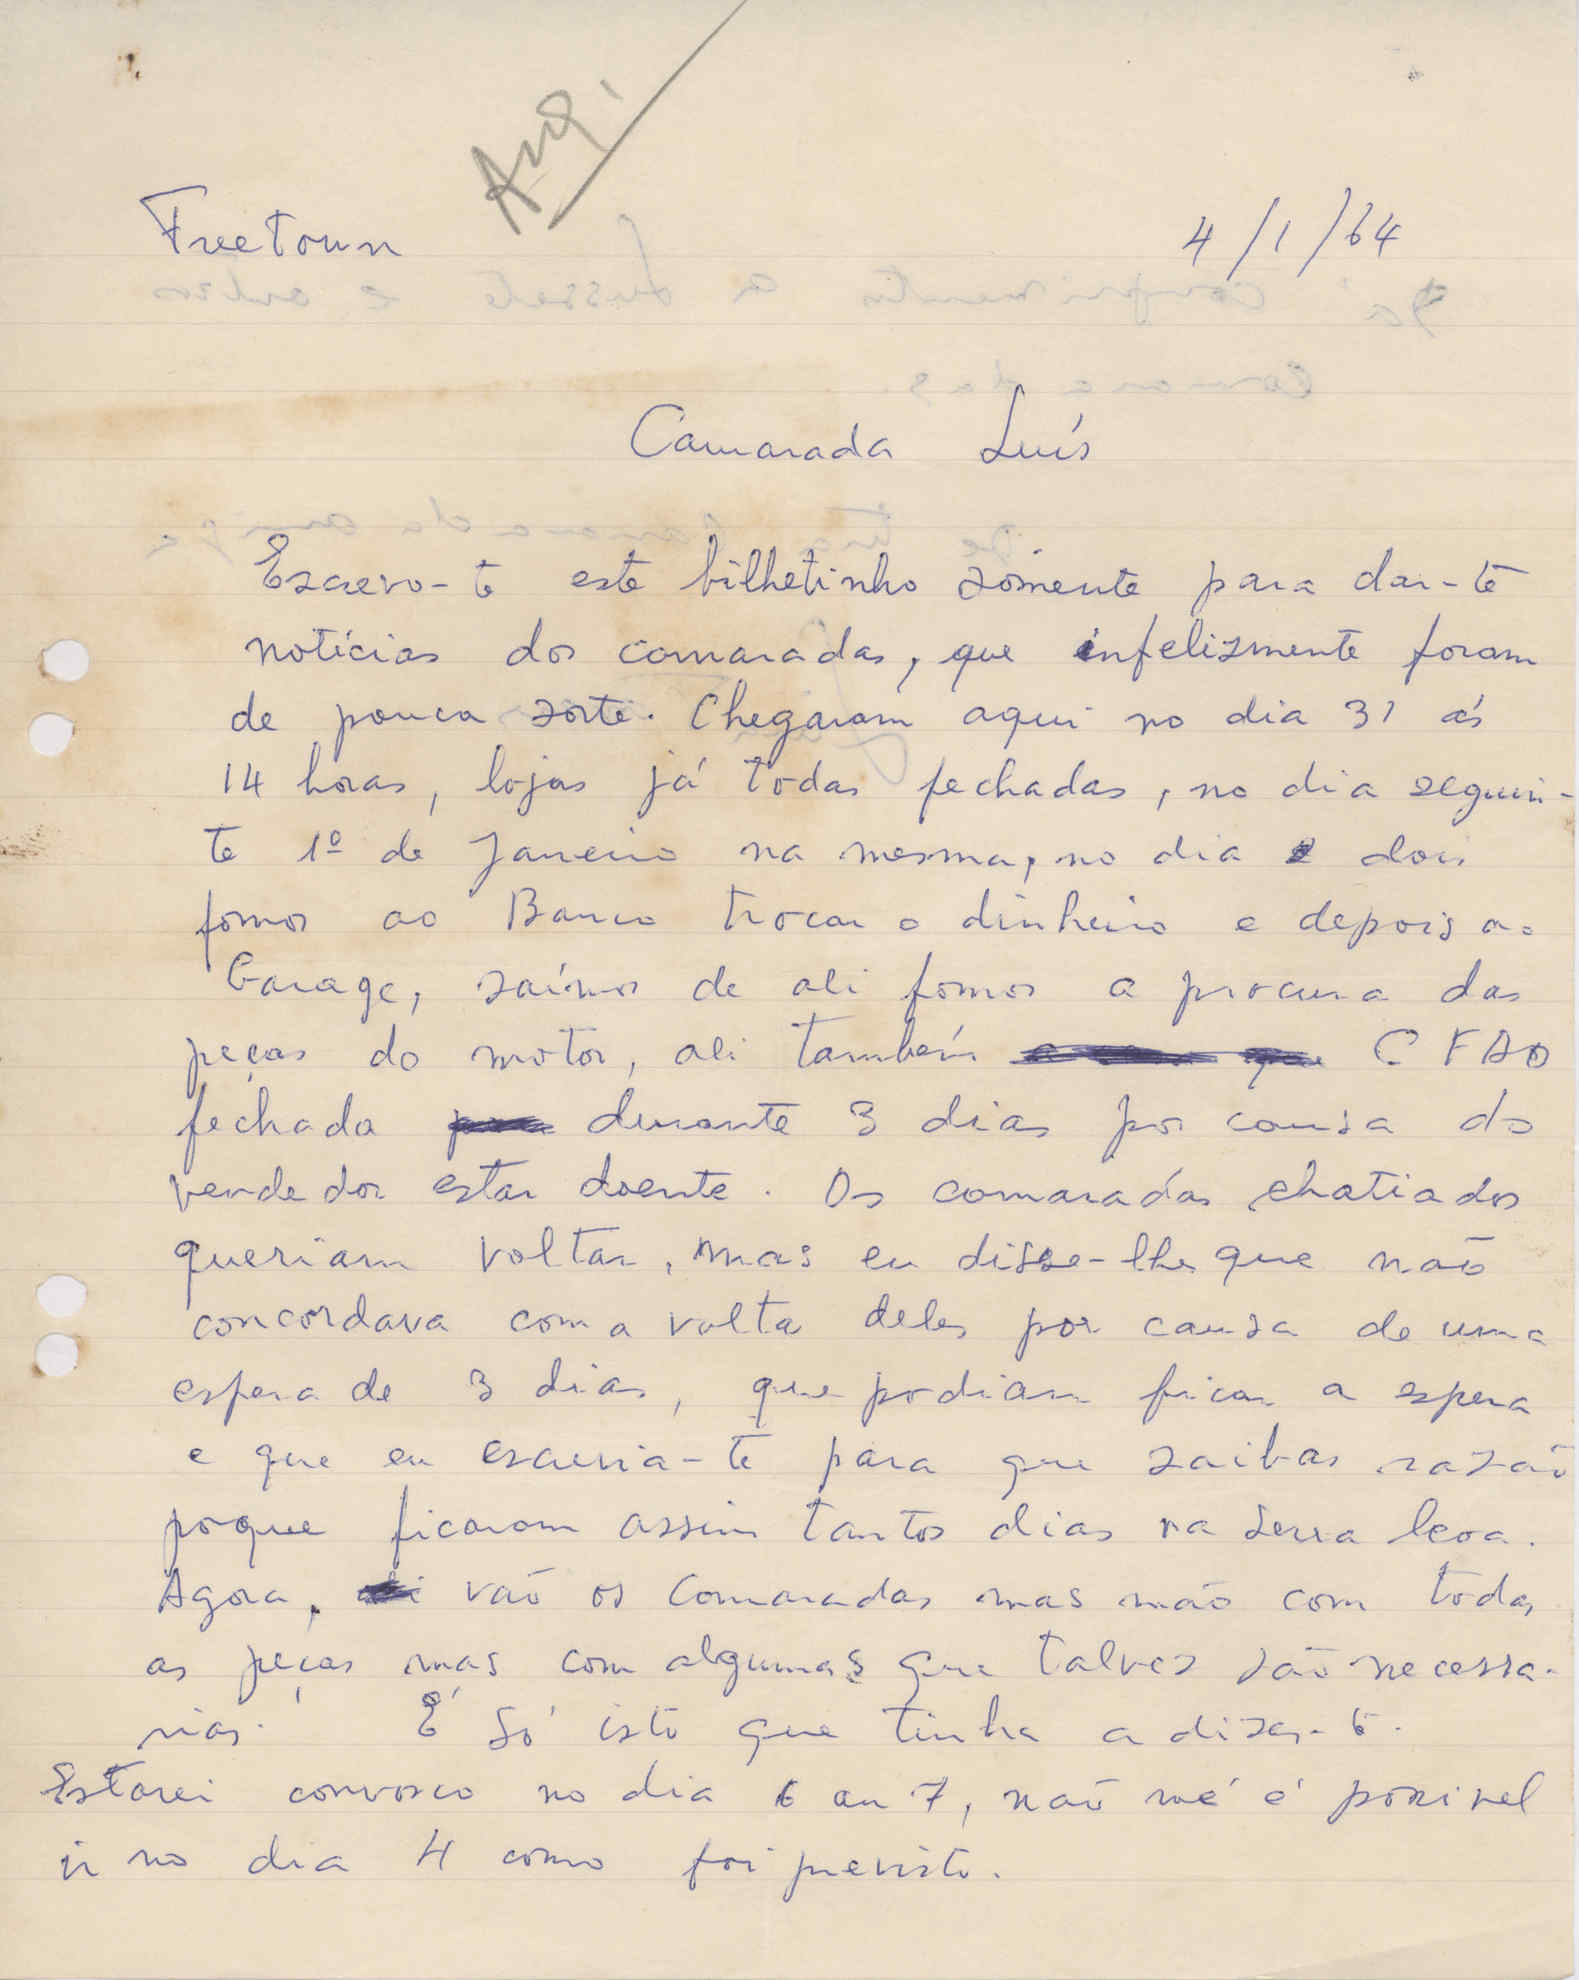 Arq.
Freetown 4/1/64
Camarada Luís
Escrevo-te este bilhetinho sómente para dar-te
notícias dos camaradas, que infelizmente foram
de pouca sorte. Chegaram aqui no dia 31 ás
14 horas, lojas já todas fechadas, no dia seguin-
te 1º de Janeiro na mesma, no dia dois
fomos ao Banco trocar o dinheiro e depois ao
Garage, saímos de ali fomos a procura das
peças do motor, ali também CFAO
fechada durante 3 dias por causa do
vendedor estar doente. Os camaradas chatiados
queriam voltar, mas eu disse-lhe que não
concordava com a volta deles por causa de uma
espera de 3 dias, que podiam ficar a espera
e que eu escrevia-te para que saibas razão
porque ficaram assim tantos dias na Serra leoa.
Agora, vão os Camaradas mas não com todas
as peças mas com algumas que talvez são necessa-
rias. É só isto que tinha a dizer-te.
Estarei convosco no dia 6 ou 7, não me é possivel
ir no dia 4 como foi previsto.